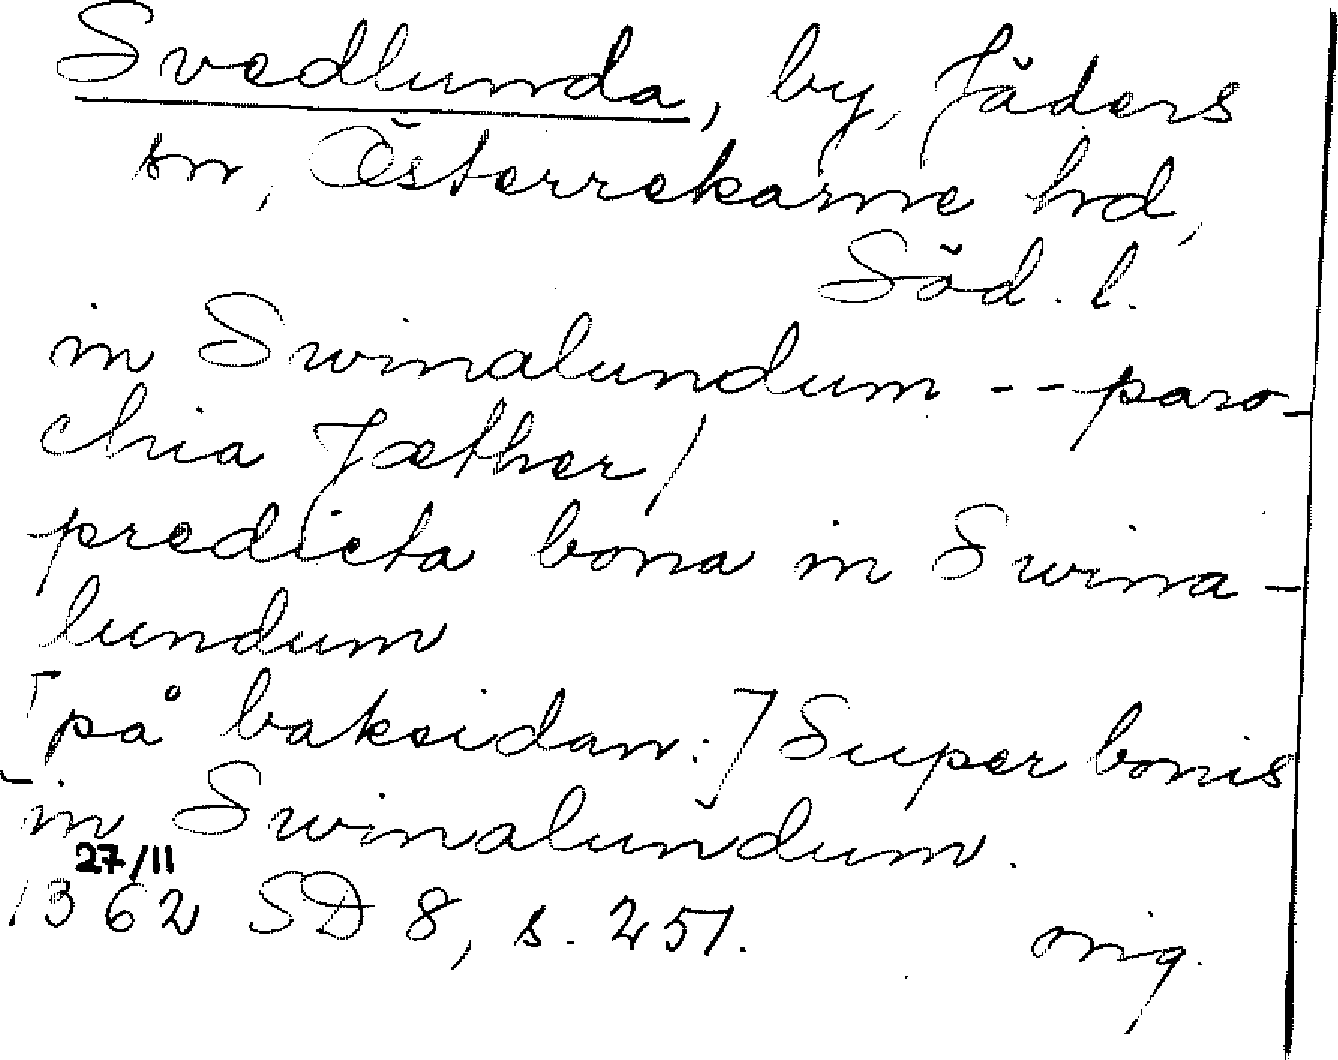 Svedlunda, by, Jäders
sn, Österrekarne hd,
Söd. l.
in Swinalundum -- paro-
chia Jæther/
predicta bona in Swina-
lundum
[på baksidan:] Super bonis
in Swinalundum.
27/11
1362 SD 8, s. 251. orig.